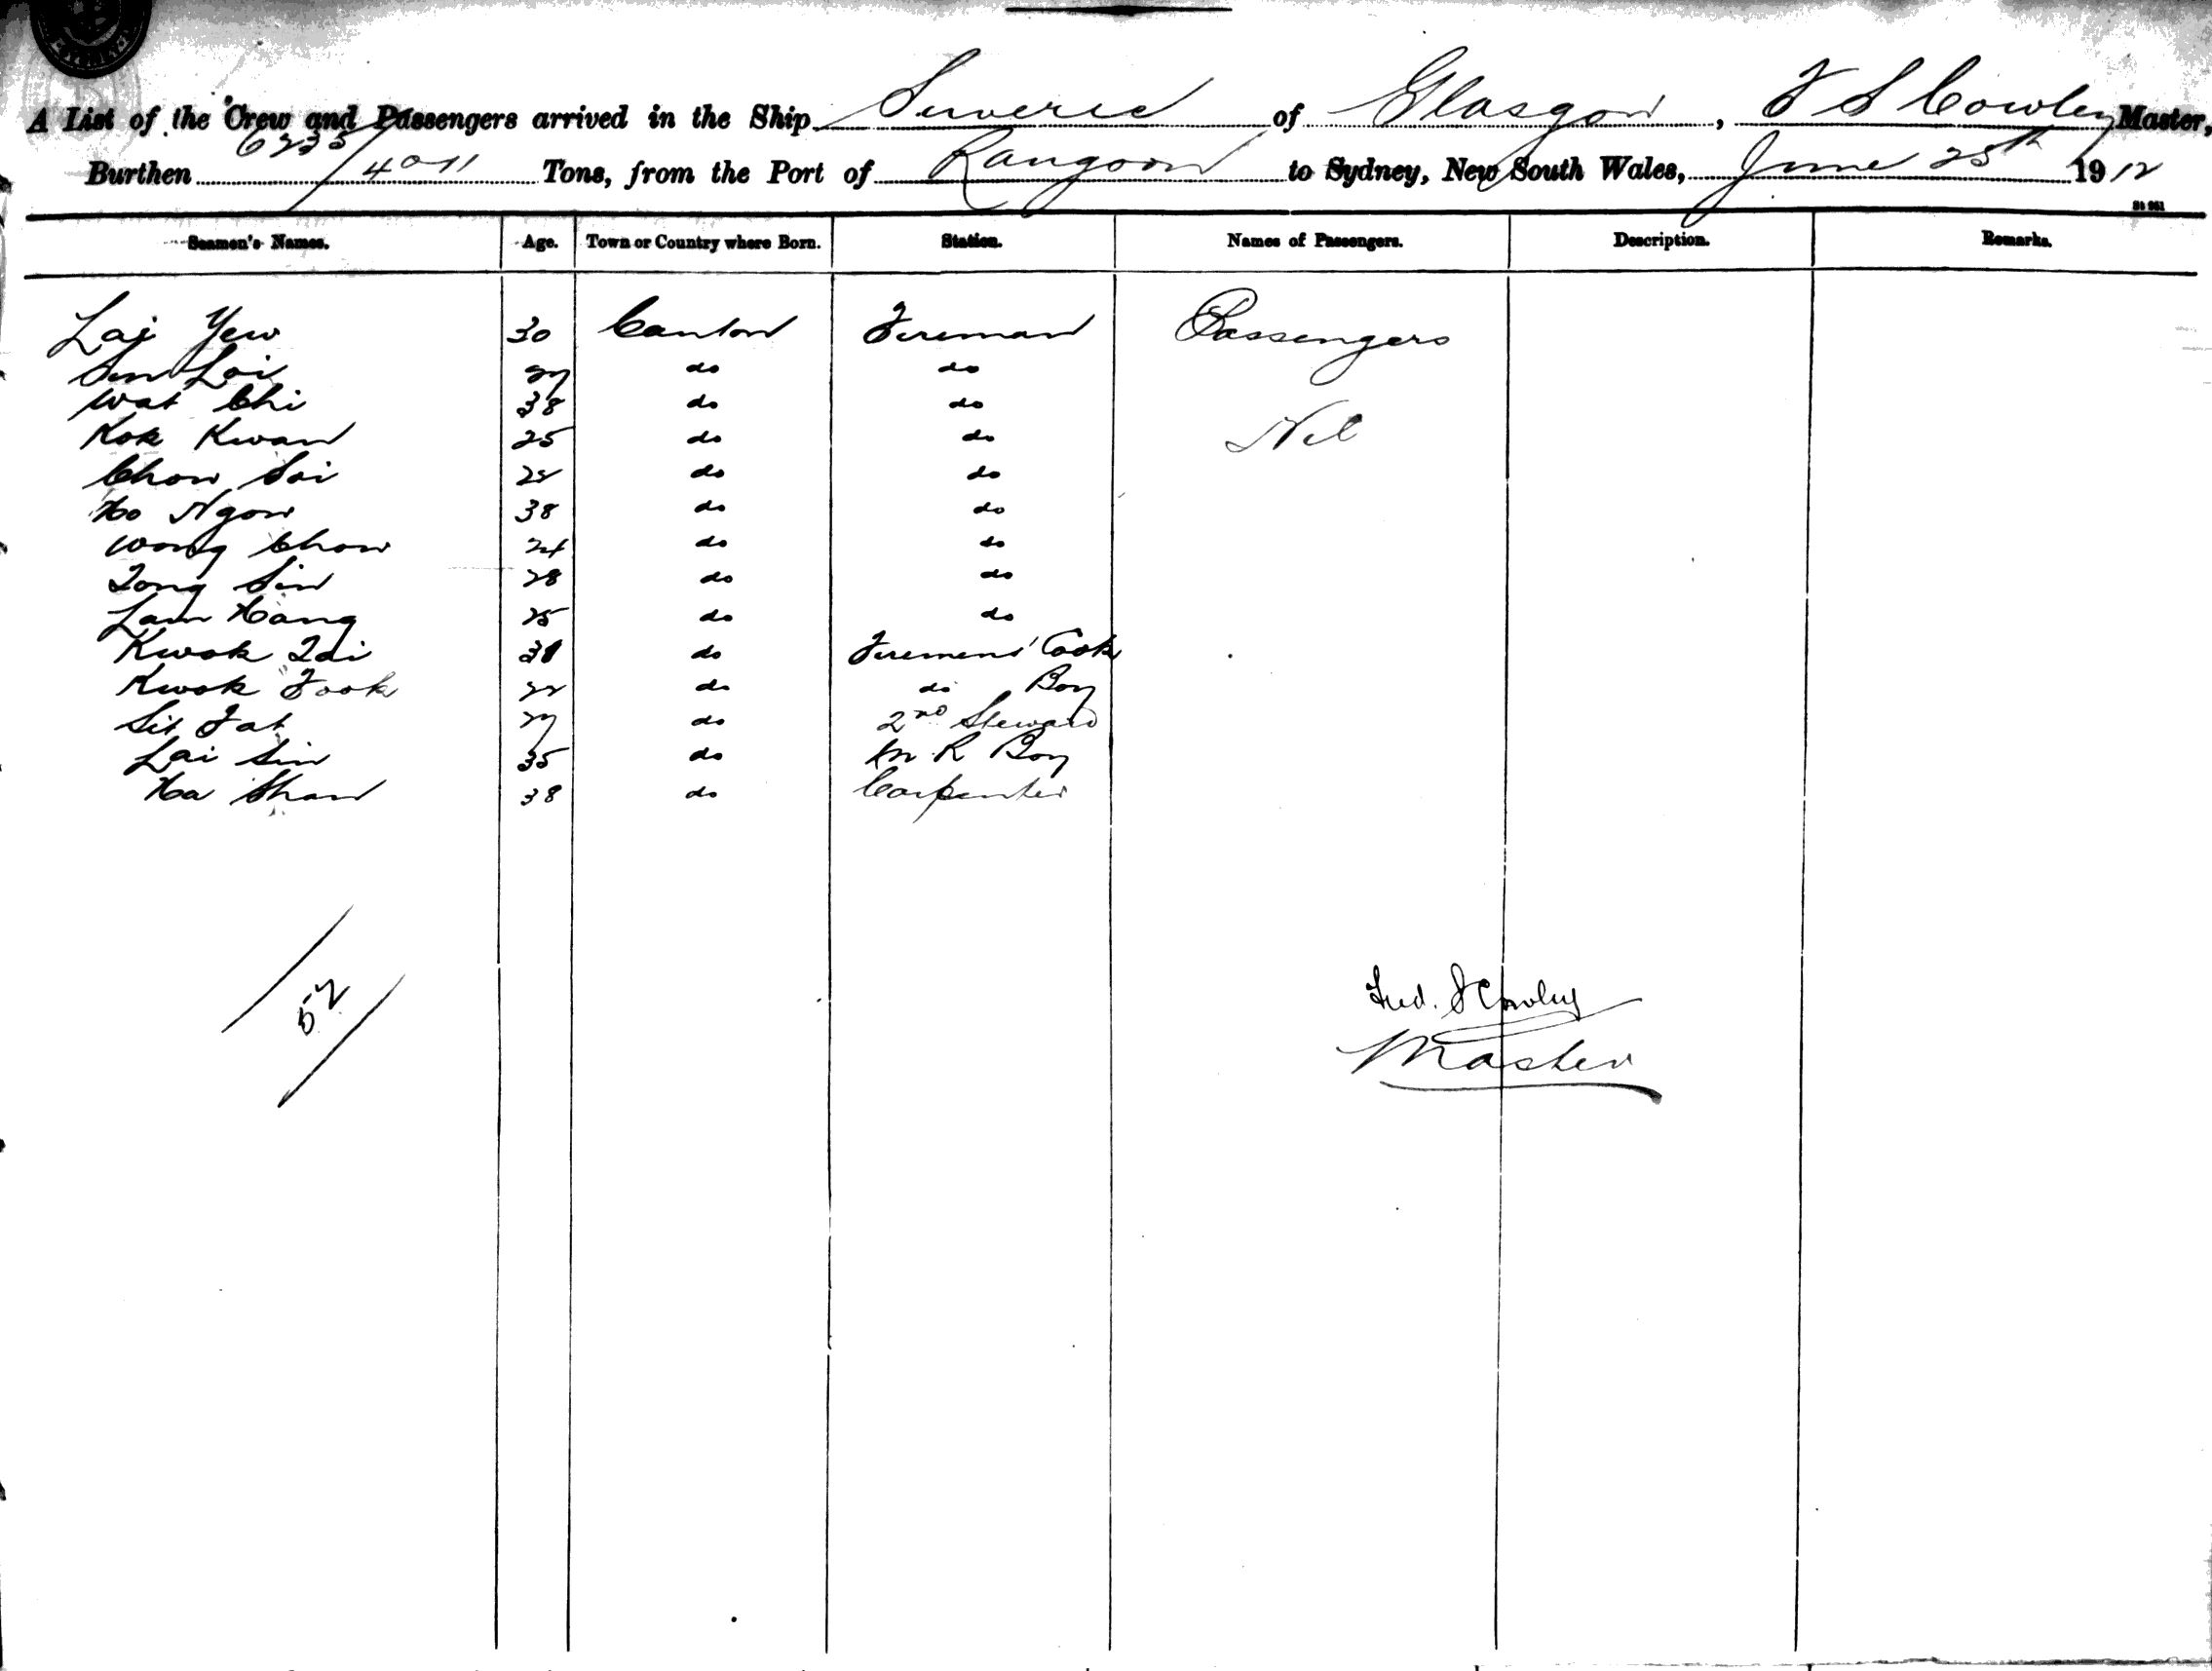 A List of the Crew and Passengers arrived in the Ship Suveric of Glasgow, F S Cowley Master,
Burthen 6235/4011 Tons, from the Port of Rangoon to Sydney, New South Wales, June 25th 1912
St 961
Seamen's Names. Age. Town or Country where Born. Station. Names of Passengers. Description. Remarks.
Lai Yew 30 Canton Fireman Passengers
Sun Loi 27 do do
Wat Chi 38 do do
Kok Kwan 25 do do Nil
Chow Soi do do
Ho Ngow 38 do do
Wong Chow 24 do do
Tong Sin 28 do do
Lam Hang 25 do do
Kwok Tai 31 do Firemens' Cook
Kwok Fook do do Boy
Sit Fat 27 do 2nd Steward
Lai Sin 35 do M R Boy
Ha Shan 38 do Carpenter
52
Fred. S Cowley
Master